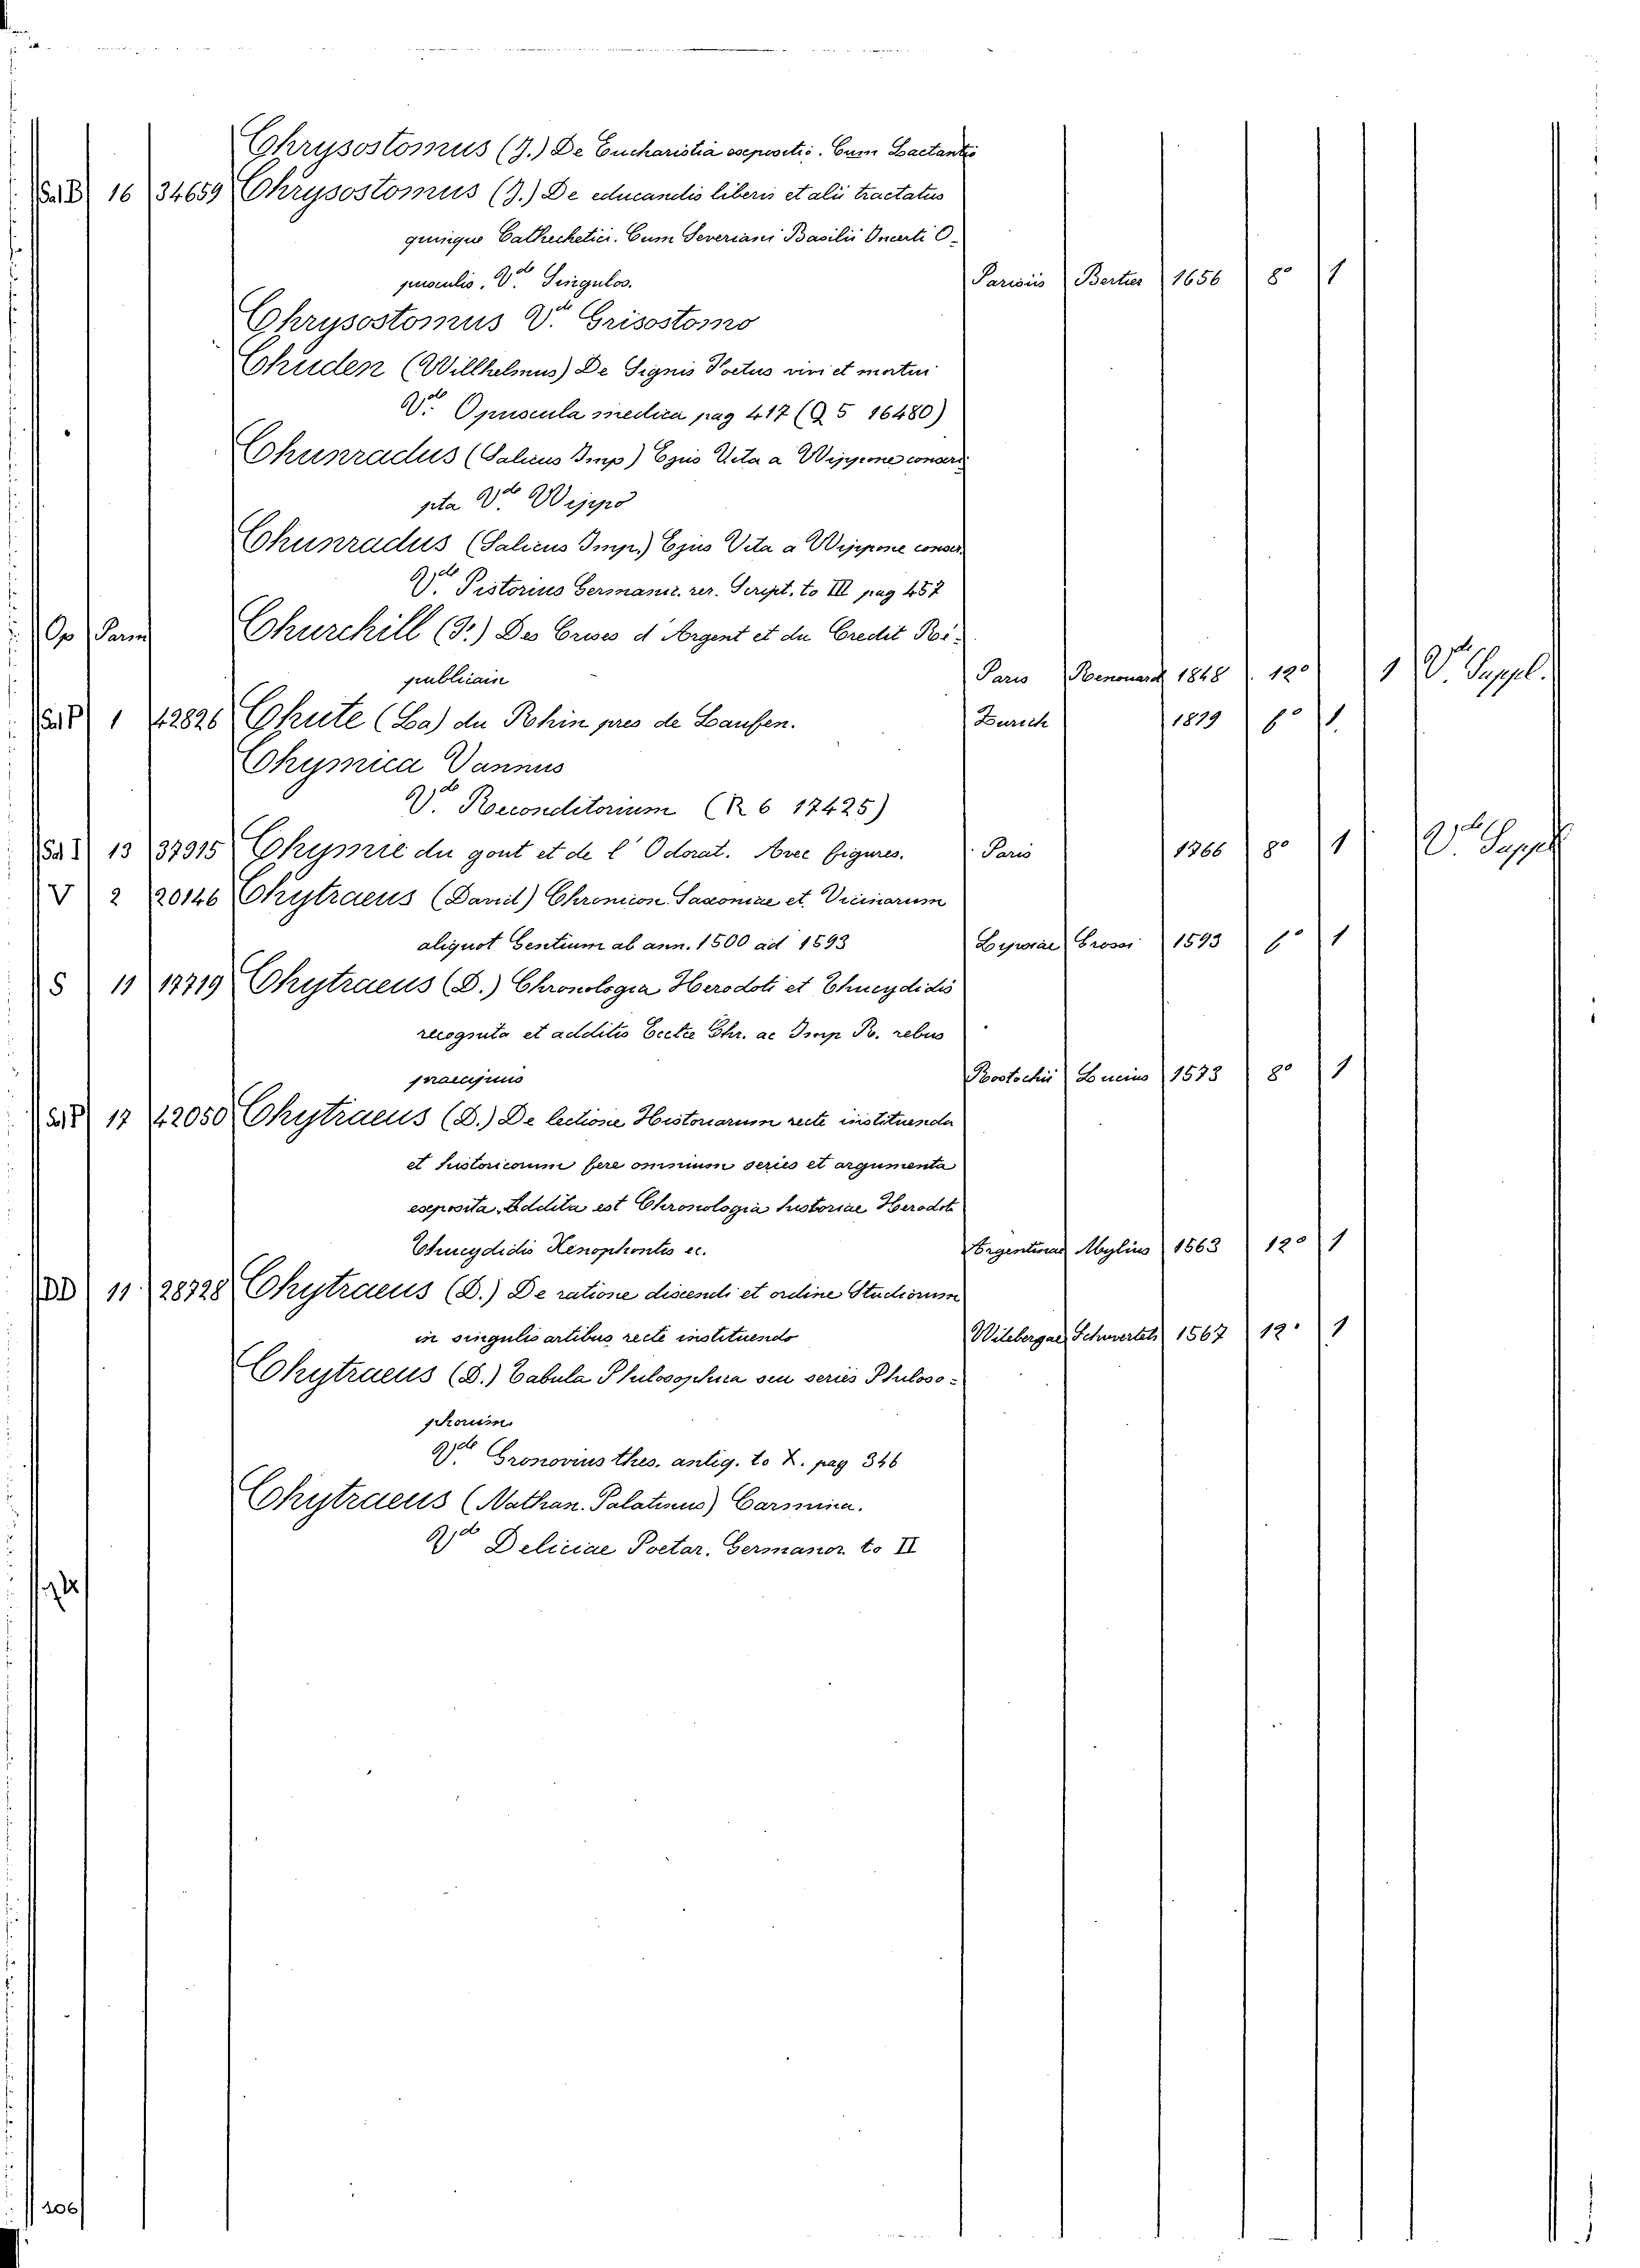 Chrysostomus (J.) De Eucharistia expositio. Cum Lactantio
Sal B 16 34659 Chrysostomus (J.) De educandis liberis et alii tractatus
quinque Cathechetici. Cum Severiani Basilii Incerti O-
pusculis. Vde Singulos. Parisiis Bertier 1656 8° 1
Chrysostomus Vde Grisostomo
Chuden (Willhelmus) De Signis Foetus vivi et mortui
Vde Opuscula medica pag 417 (Q 5 16480)
Chunradus (Salicus Imp) Ejus Vita a Wippone conscri
pta Vde Wippo
Chunradus (Salicus Imp.) Ejus Vita a Wippone conscr.
Vde Pistorius Germanic. rer. Script. to III pag 457
Op Parm Churchill (J.) Des Crises d'Argent et du Credit Ré-
publicain Paris Renouard 1848 12° 1 Vde Suppl.
Sal P 1 42826 Chute (La) du Rhin pres de Laufen. Zurich 1829 f° 1.
Chymica Vannus
Vde Reconditorium (R 6 17425)
Sal I 13 37915 Chymie du gout et de l'Odorat. Avec figures. Paris 1766 8° 1 Vde Suppl
V 2 20146 Chytraeus (David) Chronicon Saxoniae et Vicinarum
aliquot Gentium ab ann. 1500 ad 1593 Lypsiae Grossi 1593 f° 1
S 11 17719 Chytraeus (D.) Chronologia Herodoti et Thucydidis
recognita et additis Chr. ac Imp R. rebus
praecipuis Rostochii Lucius 1573 8° 1
Sal P 17 42050 Chytraeus (D.) De lectione Historiarum recte instituenda
et historicorum fere omnium series et argumenta
exposita. Addita est Chronologia historiae Herodoti
Thucydidis Xenophontis ec. Argentinae Mylius 1563 12° 1
DD 11 28728 Chytraeus (D.) De ratione discendi et ordine Studiorum
in singulis artibus recte instituendo Witebergae Schwertel 1567 12° 1
Chytraeus (D.) Tabula Philosophica seu series Philoso-
phorum.
Vde Gronovius thes. antiq. to X. pag 346
Chytraeus (Nathan. Palatinus) Carmina.
Vde Deliciae Poetar. Germanor. to II
206